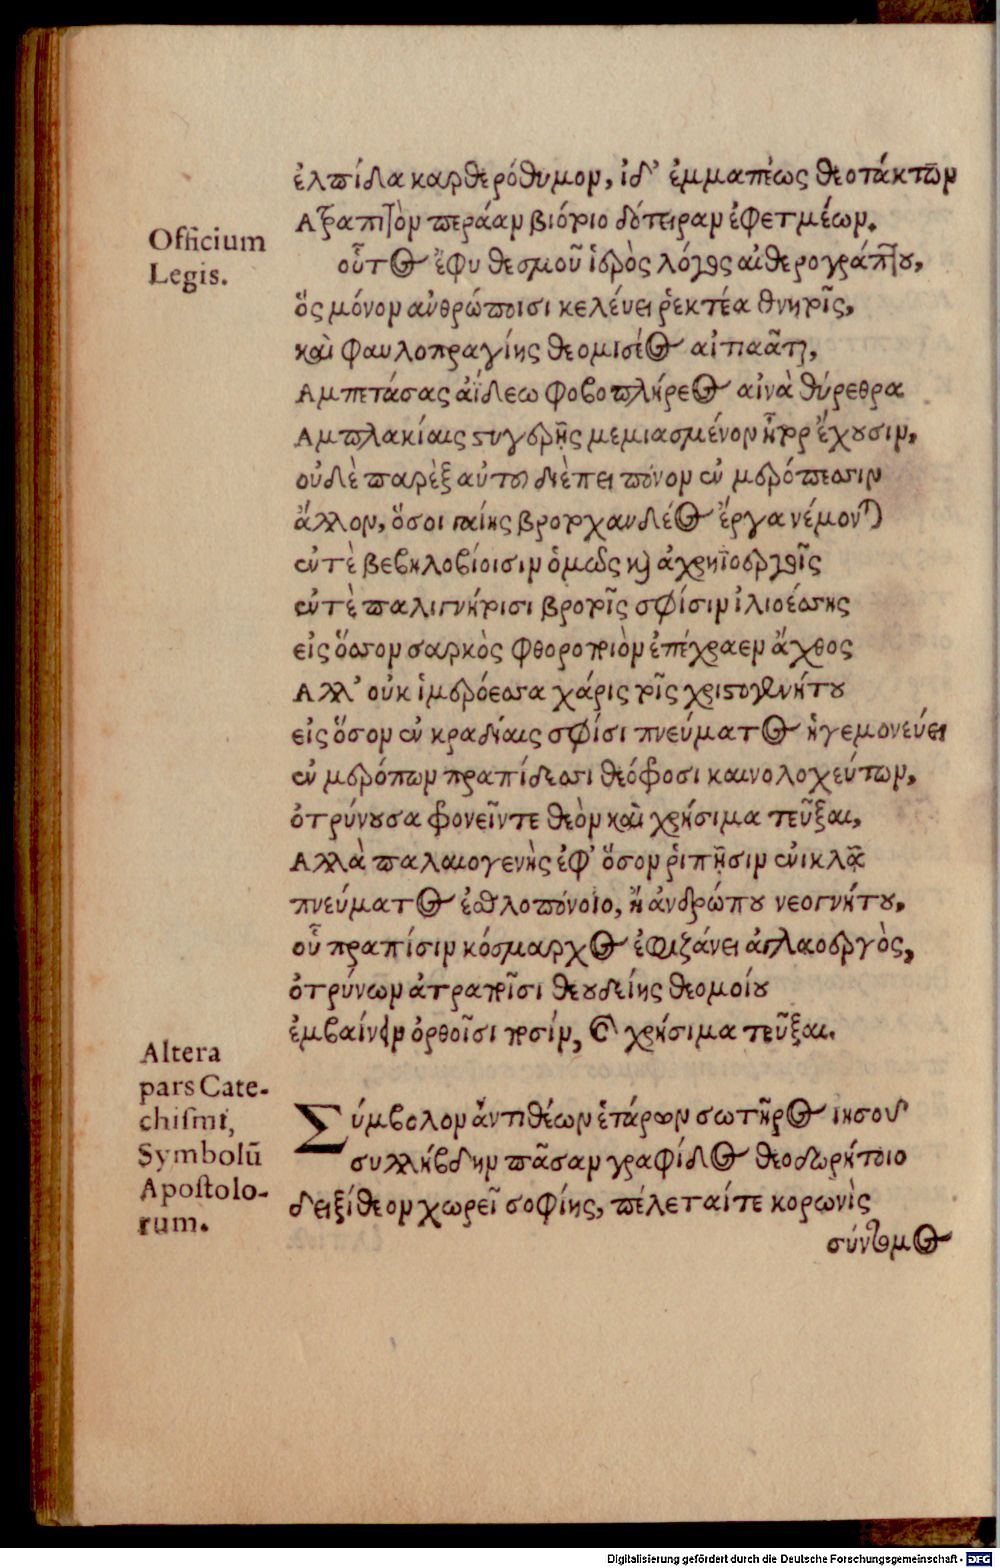 ἐλπίδα καρτερόθυμον, ἰδ' ἐμμαπέως θεοτάκτων
Ἀτραπιτὸν περάαν βιότοιο ἐφετμέων.
Officium
Legis.
οὗτος ἔφυ θεσμοῦ ἱερὸς λόγος αἰθερογράπτου,
ὅς μόνον ἀνθρώποισι κελεύει ῥεκτέα θνητοῖς,
καὶ φαυλοπραγίης θεομισέος αἰτιᾶται,
Ἀμπετάσας ἀΐδεω φοβοπλήρεος αἰνὰ θύρεθρα
Ἀμπλακίαις στυγερῇς μεμιασμένον ἦτορ ἔχουσιν,
οὐδὲ παρὲξ αὐτοῦ διέπει πόνον ἐν μερόπεσσιν
ἄλλον, ὅσοι ἔργα νέμονται
ἐν τὲ βεβηλοβίοισιν ὁμῶς καὶ ἀχρηϊοεργοῖς
ἐν τὲ παλιγνήτοισι βροτοῖς σφίσιν
εἰς ὅσσον σαρκὸς ἐπέχραεν ἄχθος
Ἀλλ' οὐκ ἱμερόεσσα χάρις τοῖς χριστογεννήτου
εἰς ὅσον ἐν κραδίαις σφίσι πνεύματος ἡγεμονεύει
ἐν μερόπων πραπίδεσσι θεόφοσι καινολοχεύτων,
ὀτρύνουσα φρονεῖν τε θεὸν καὶ χρήσιμα τεῦξαι,
Ἀλλὰ παλαιογενὴς ἐφ' ὅσον ῥιπῇσιν ἐνικλᾷ
πνεύματος ἐσθλοπόνοιο, ἢ ἀνθρώπου νεογνήτου,
οὗ πραπίσιν κόσμαρχος ἐφιζάνει ἀγλαοεργὸς,
ὀτρύνων ἀτραπιτοῖσι θεουδείης θεομοίου
ἐμβαίνειν ὀρθοῖσι ποσίν, καὶ χρήσιμα τεῦξαι.
Altera
pars Cate-
chismi,
Symbolũ
Apostolo-
rum.
Σύμβολον ἀντιθέων ἑτάρων σωτῆρος ἰησοῦ
συλλήβδην πᾶσαν γραφίδος θεοδωρήτοιο
δειξίθεον χωρεῖ σοφίης, πέλεταί τε κορωνὶς
σύνθεμος